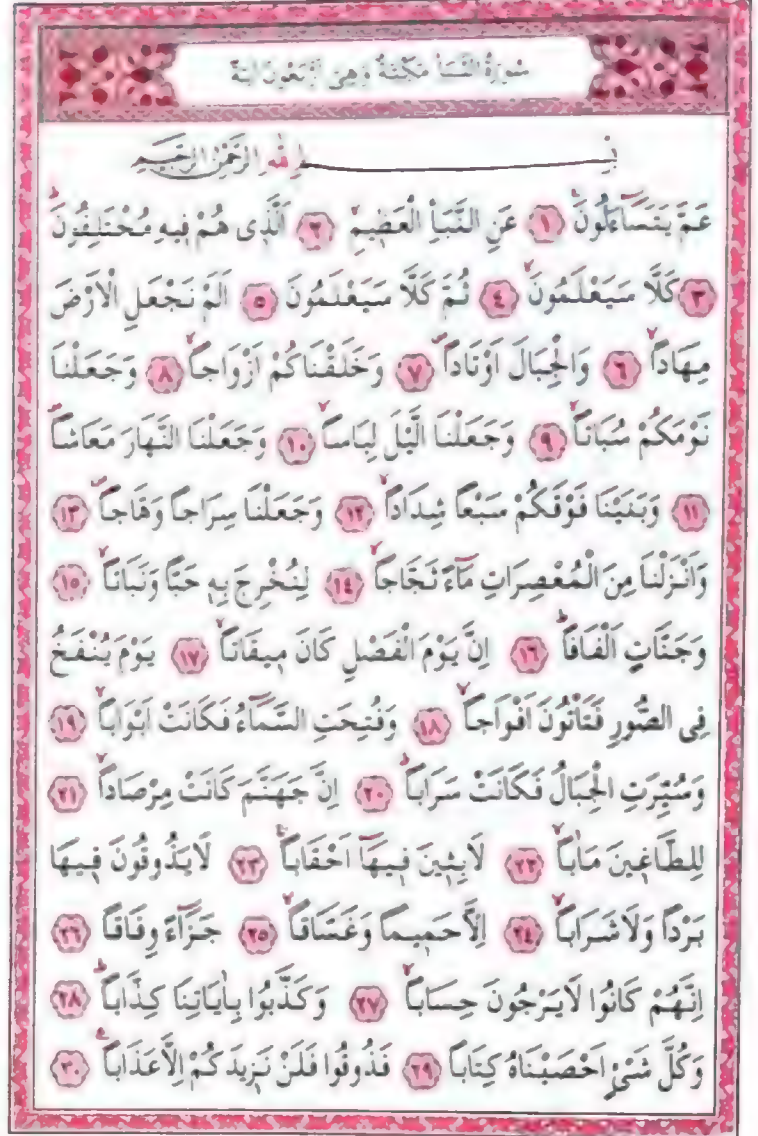 سُورَةُ النَّبَأِ مَكِّيَّةٌ وَهِيَ اَرْبَعُونَ اٰيَةً
بِسْــــــــــــمِ اللهِ الرَّحْمٰنِ الرَّحِيمِ
عَمَّ يَتَسَٓاءَلُونَۚ ﴿١﴾ عَنِ النَّبَأِ الْعَظِيمِۙ ﴿٢﴾ اَلَّذِى هُمْ فِيهِ مُخْتَلِفُونَۜ
﴿٣﴾ كَلَّا سَيَعْلَمُونَۙ ﴿٤﴾ ثُمَّ كَلَّا سَيَعْلَمُونَ ﴿٥﴾ اَلَمْ نَجْعَلِ الْاَرْضَ
مِهَاداًۙ ﴿٦﴾ وَالْجِبَالَ اَوْتَاداًۖ ﴿٧﴾ وَخَلَقْنَاكُمْ اَزْوَاجاًۙ ﴿٨﴾ وَجَعَلْنَا
نَوْمَكُمْ سُبَاتاًۙ ﴿٩﴾ وَجَعَلْنَا الَّيْلَ لِبَاساًۙ ﴿١٠﴾ وَجَعَلْنَا النَّهَارَ مَعَاشاًۖ
﴿١١﴾ وَبَنَيْنَا فَوْقَكُمْ سَبْعاً شِدَاداًۙ ﴿١٢﴾ وَجَعَلْنَا سِرَاجاً وَهَّاجاًۖ ﴿١٣﴾
وَاَنْزَلْنَا مِنَ الْمُعْصِرَاتِ مَٓاءً ثَجَّاجاًۙ ﴿١٤﴾ لِنُخْرِجَ بِهِ حَبًّا وَنَبَاتاًۙ ﴿١٥﴾
وَجَنَّاتٍ اَلْفَافاًۜ ﴿١٦﴾ اِنَّ يَوْمَ الْفَصْلِ كَانَ مِيقَاتاًۙ ﴿١٧﴾ يَوْمَ يُنْفَخُ
فِى الصُّورِ فَتَأْتُونَ اَفْوَاجاًۙ ﴿١٨﴾ وَفُتِحَتِ السَّمَٓاءُ فَكَانَتْ اَبْوَاباًۙ ﴿١٩﴾
وَسُيِّرَتِ الْجِبَالُ فَكَانَتْ سَرَاباًۜ ﴿٢٠﴾ اِنَّ جَهَنَّمَ كَانَتْ مِرْصَاداًۙ ﴿٢١﴾
لِلطَّاغِينَ مَاٰباًۙ ﴿٢٢﴾ لَابِثِينَ فِيهَٓا اَحْقَاباًۚ ﴿٢٣﴾ لَايَذُوقُونَ فِيهَا
بَرْداً وَلَاشَرَاباًۙ ﴿٢٤﴾ اِلَّاحَمِيماً وَغَسَّاقاًۙ ﴿٢٥﴾ جَزَٓاءً وِفَاقاً ﴿٢٦﴾
اِنَّهُمْ كَانُوا لَايَرْجُونَ حِسَاباًۙ ﴿٢٧﴾ وَكَذَّبُوا بِاٰيَاتِنَا كِذَّاباًۜ ﴿٢٨﴾
وَكُلَّ شَىْءٍ اَحْصَيْنَاهُ كِتَاباًۙ ﴿٢٩﴾ فَذُوقُوا فَلَنْ نَزِيدَكُمْ اِلَّاعَذَاباًۚ ﴿٣٠﴾